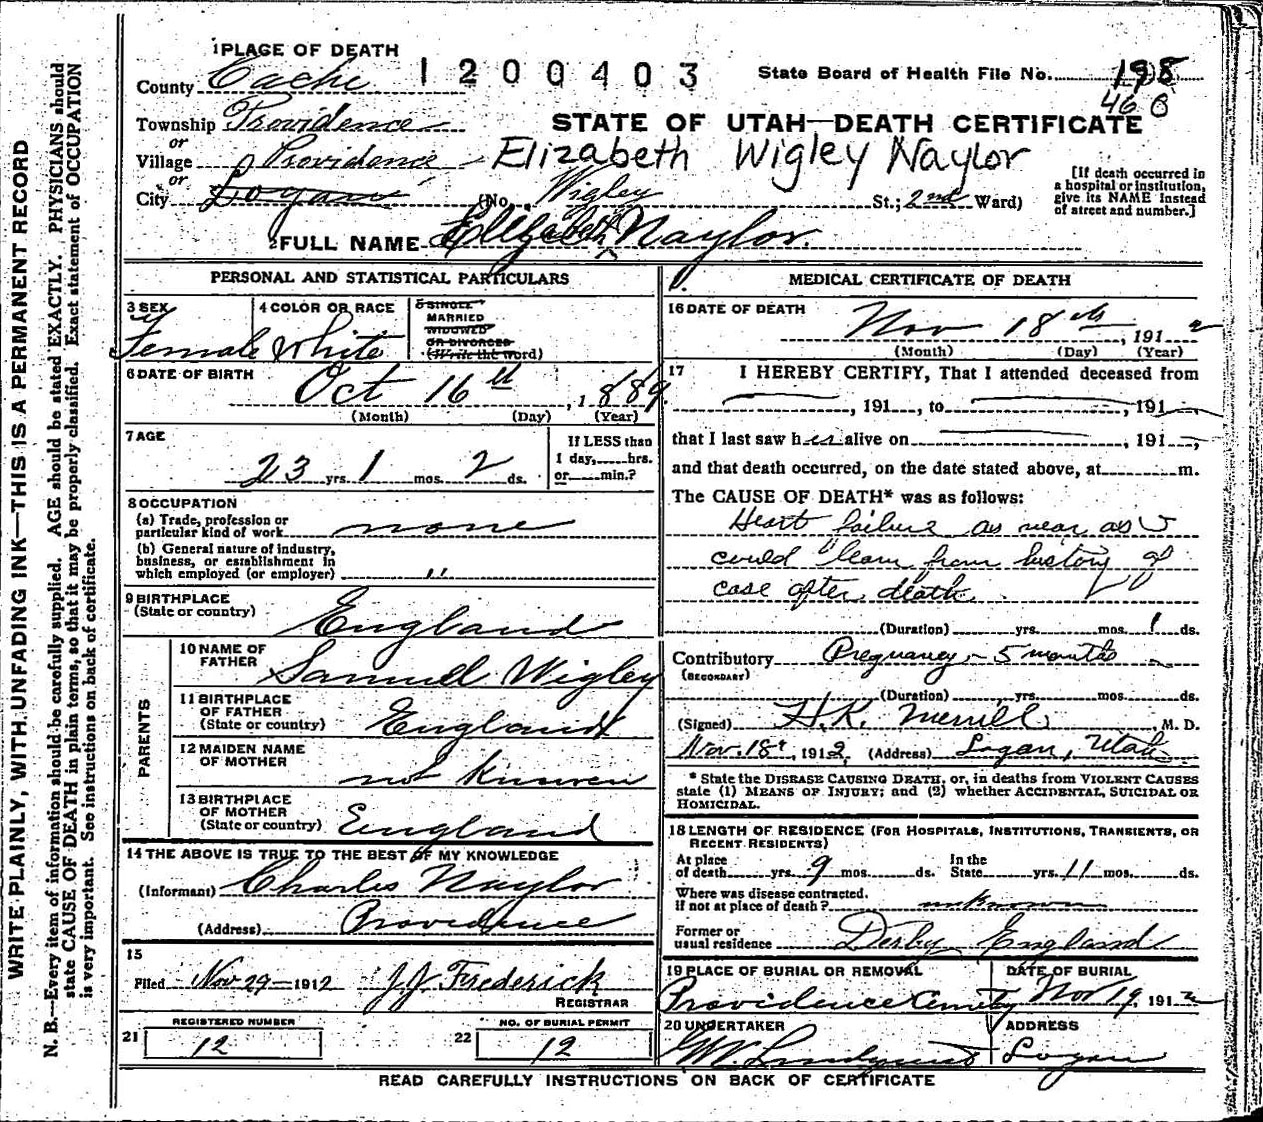 1 PLACE OF DEATH
1200403
State Board of Health File No. 198
46 B
County Cache
Township Providence
or
Village Providence
or
City Logan
STATE OF UTAH—DEATH CERTIFICATE
Elizabeth Wigley Naylor
(No. St.; 2nd Ward)
[If death occurred in
a hospital or institution,
give its NAME instead
of street and number.]
Wigley
2 FULL NAME Elizabeth Naylor.
PERSONAL AND STATISTICAL PARTICULARS
3 SEX
Female
4 COLOR OR RACE
White
5 SINGLE
MARRIED
WIDOWED
OR DIVORCED
(Write the word)
6 DATE OF BIRTH
Oct 16th, 1889.
(Month) (Day) (Year)
7 AGE
23 yrs. 1 mos. 2 ds.
If LESS than
1 day, hrs.
or min.?
8 OCCUPATION
(a) Trade, profession or
particular kind of work none
(b) General nature of industry,
business, or establishment in
which employed (or employer) "
9 BIRTHPLACE
(State or country) England
PARENTS
10 NAME OF
FATHER Samuel Wigley
11 BIRTHPLACE
OF FATHER
(State or country) England
12 MAIDEN NAME
OF MOTHER
not known
13 BIRTHPLACE
OF MOTHER
(State or country) England
14 THE ABOVE IS TRUE TO THE BEST OF MY KNOWLEDGE
(Informant) Charles Naylor
(Address) Providence
15
Filed Nov 29 - 1912 J. J. Frederick
REGISTRAR
21 REGISTERED NUMBER
12
22 NO. OF BURIAL PERMIT
12
MEDICAL CERTIFICATE OF DEATH
16 DATE OF DEATH
Nov 18th, 1912
(Month) (Day) (Year)
17 I HEREBY CERTIFY, That I attended deceased from
, 191 , to , 191 ,
that I last saw her alive on , 191 ,
and that death occurred, on the date stated above, at m.
The CAUSE OF DEATH* was as follows:
Heart failure as near as I
could learn from history of
case after death
(Duration) yrs. mos. 1 ds.
Contributory Pregnancy - 5 months
(SECONDARY)
(Duration) yrs. mos. ds.
(Signed) H. K. Merrill, M. D.
Nov. 18th, 1912, (Address) Logan, Utah
* State the DISEASE CAUSING DEATH, or, in deaths from VIOLENT CAUSES
state (1) MEANS OF INJURY; and (2) whether ACCIDENTAL, SUICIDAL OR
HOMICIDAL.
18 LENGTH OF RESIDENCE (FOR HOSPITALS, INSTITUTIONS, TRANSIENTS, OR
RECENT RESIDENTS)
At place
of death yrs. 9 mos. ds.
In the
State yrs. 11 mos. ds.
Where was disease contracted.
If not at place of death? unknown
Former or
usual residence Derby England
19 PLACE OF BURIAL OR REMOVAL
Providence Cemetery
DATE OF BURIAL
Nov 19, 1912
20 UNDERTAKER
Lundquist
ADDRESS
Logan
READ CAREFULLY INSTRUCTIONS ON BACK OF CERTIFICATE
WRITE PLAINLY, WITH UNFADING INK—THIS IS A PERMANENT RECORD
N. B.—Every item of information should be carefully supplied. AGE should be stated EXACTLY. PHYSICIANS should
state CAUSE OF DEATH in plain terms, so that it may be properly classified. Exact statement of OCCUPATION
is very important. See instructions on back of certificate.